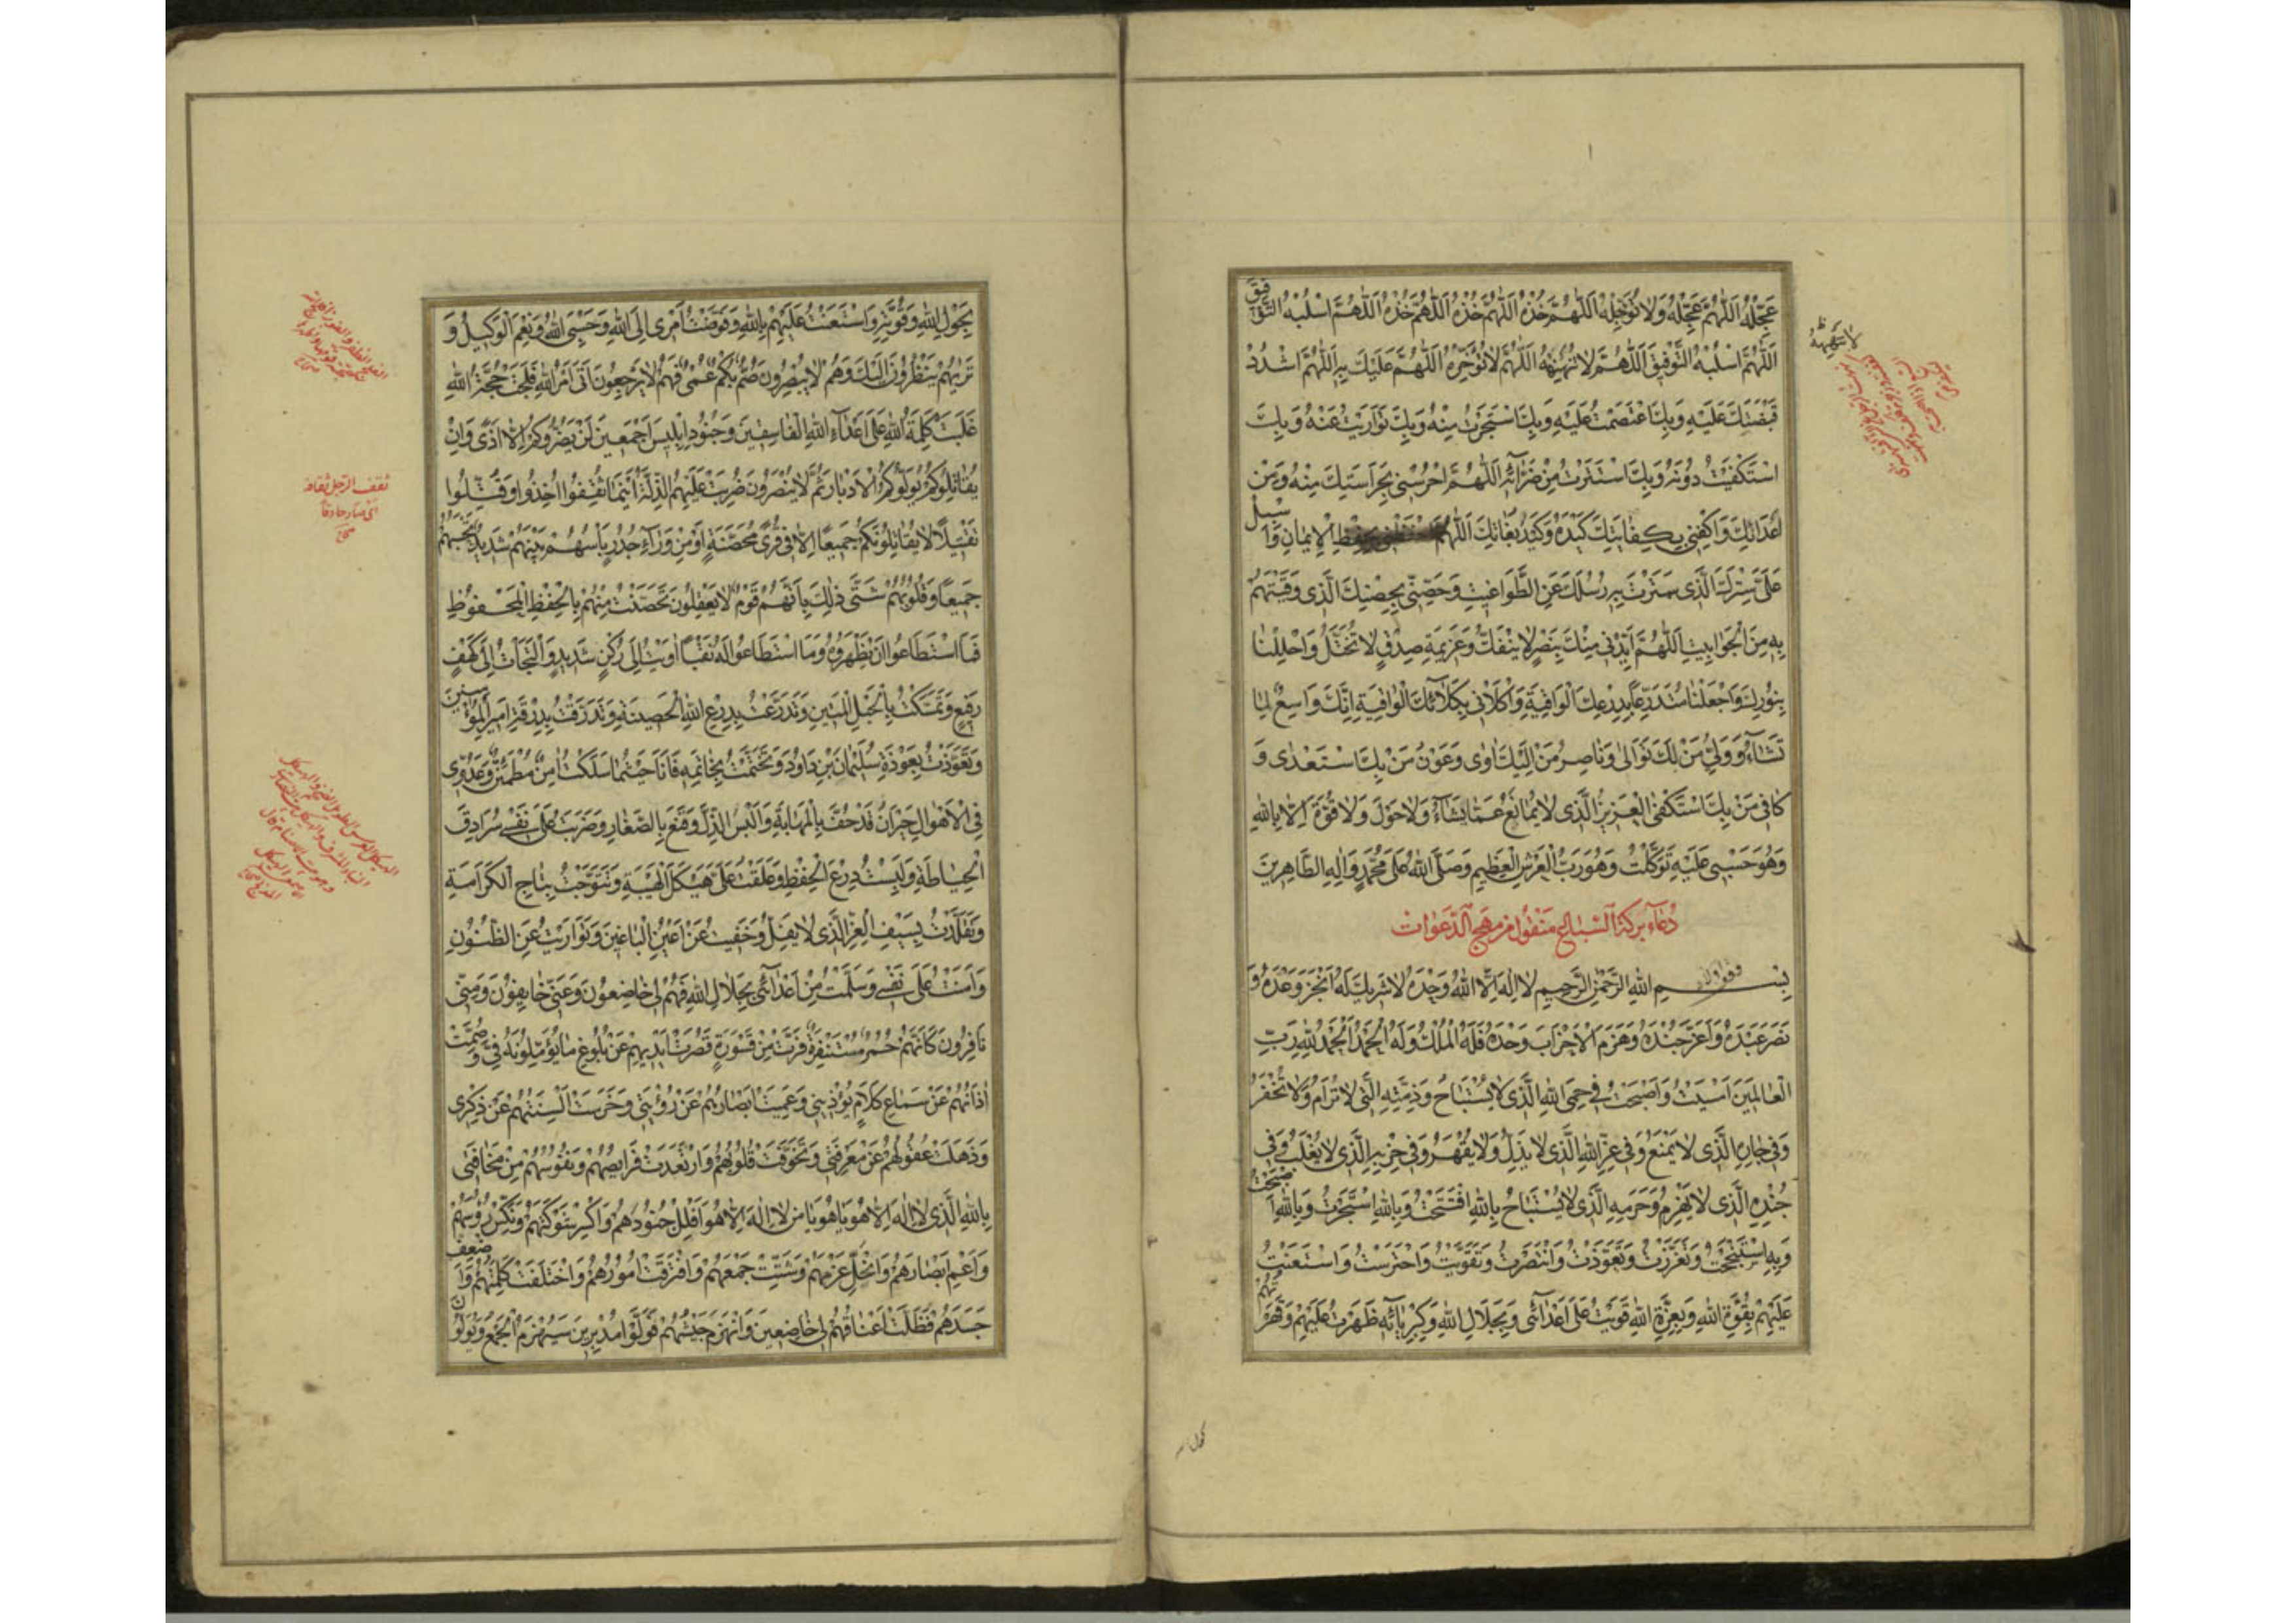 عَجِّلْهُ اَللّٰهُمَّ عَجِّلْهُ وَلا تُؤَجِّلْهُ اَللّٰهُمَّ خُذْهُ اَللّٰهُمَّ خُذْهُ اَللّٰهُمَّ خُذْهُ اَللّٰهُمَّ اسْلُبْهُ التَّوْفِيقَ
اَللّٰهُمَّ اسْلُبْهُ التَّوْفِيقَ اَللّٰهُمَّ لا تُمْهِلْهُ اَللّٰهُمَّ لا تُؤَخِّرْهُ اَللّٰهُمَّ عَلَيْكَ بِهِ اَللّٰهُمَّ اشْدُدْ
قَبْضَتَكَ عَلَيْهِ وَبِكَ اعْتَصَمْتُ عَلَيْهِ وَبِكَ اسْتَجَرْتُ مِنْهُ وَبِكَ تَوَارَيْتُ عَنْهُ وَبِكَ
اسْتَكْفَيْتُ دُونَهُ وَبِكَ اسْتَتَرْتُ مِنْ ضَرَّائِهِ اَللّٰهُمَّ احْرُسْنِي بِحَرَاسَتِكَ مِنْهُ وَمِنْ
اَعْدَائِكَ وَاكْفِنِي بِكِفَايَتِكَ كَيْدَهُ وَكَيْدَ بُغَاتِكَ اَللّٰهُمَّ بِحِفْظِ الْاِيمَانِ وَاَسْبِلْ
عَلَيَّ سِتْرَكَ الَّذِي سَتَرْتَ بِهِ رُسُلَكَ عَنِ الطَّوَاغِيتِ وَحَصِّنِّي بِحِصْنِكَ الَّذِي وَقَيْتَهُمْ
بِهِ مِنَ الْجَوَابِيتِ اَللّٰهُمَّ اَيِّدْنِي مِنْكَ بِنَصْرٍ لا يَنْفَكُّ وَعَزِيمَةِ صِدْقٍ لا تُخْتَلُّ وَاجْلِلْنَا
بِنُورِكَ وَاجْعَلْنَا مُتَدَرِّعًا بِدِرْعِكَ الْوَاقِيَةِ وَاكْلَأْنِي بِكِلَائَتِكَ الْوَاقِيَةِ اِنَّكَ وَاسِعٌ لِمَا
تَشَاءُ وَوَلِيُّ مَنْ لَكَ تَوَالَى وَنَاصِرُ مَنْ اِلَيْكَ اَوَى وَعَوْنُ مَنْ بِكَ اسْتَعْدَى وَ
كَافِي مَنْ بِكَ اسْتَكْفَى الْعَزِيزُ الَّذِي لا يُمَانَعُ عَمَّا يَشَاءُ وَلا حَوْلَ وَلا قُوَّةَ اِلَّا بِاللهِ
وَهُوَ حَسْبِي عَلَيْهِ تَوَكَّلْتُ وَهُوَ رَبُّ الْعَرْشِ الْعَظِيمِ وَصَلَّى اللهُ عَلَى مُحَمَّدٍ وَالِهِ الطَّاهِرِينَ
دُعَاءِ بركة السباع منقول از مهج الدّعوات
بِسْمِ اللهِ الرَّحْمٰنِ الرَّحِيمِ لا اِلٰهَ اِلَّا اللهُ وَحْدَهُ لا شَرِيكَ لَهُ اَنْجَزَ وَعْدَهُ وَ
نَصَرَ عَبْدَهُ وَاَعَزَّ جُنْدَهُ وَهَزَمَ الْاَحْزَابَ وَحْدَهُ فَلَهُ الْمُلْكُ وَلَهُ الْحَمْدُ اَلْحَمْدُ لِلّٰهِ رَبِّ
الْعَالَمِينَ اَمْسَيْتُ وَاَصْبَحْتُ فِي حِمَى اللهِ الَّذِي لا يُسْتَبَاحُ وَذِمَّتِهِ الَّتِي لا تُرَامُ وَلا تُخْفَرُ
وَفِي جَارِ اللهِ الَّذِي لا يُمْنَعُ وَفِي عِزِّ اللهِ الَّذِي لا يُذَلُّ وَلا يُقْهَرُ وَفِي حِزْبِهِ الَّذِي لا يُغْلَبُ وَفِي
جُنْدِهِ الَّذِي لا يُهْزَمُ وَحَرَمِهِ الَّذِي لا يُسْتَبَاحُ بِاللهِ افْتَتَحْتُ وَبِاللهِ اسْتَجَرْتُ وَبِاللهِ اَصْبَحْتُ
وَبِهِ اسْتَنْجَحْتُ وَتَعَزَّزْتُ وَتَعَوَّذْتُ وَانْتَصَرْتُ وَتَقَوَّيْتُ وَاحْتَرَسْتُ وَاسْتَعَنْتُ
عَلَيْهِمْ بِقُوَّةِ اللهِ وَبِعِزَّةِ اللهِ قَوِيتُ عَلَى اَعْدَائِي وَبِجَلَالِ اللهِ وَكِبْرِيَائِهِ ظَهَرْتُ عَلَيْهِمْ وَقَهَرْتُهُمْ
بِحَوْلِ اللهِ وَقُوَّتِهِ وَاسْتَعَنْتُ عَلَيْهِمْ بِاللهِ وَفَوَّضْتُ اَمْرِي اِلَى اللهِ وَحَسْبِيَ اللهُ وَنِعْمَ الْوَكِيلُ وَ
تَرٰيهُمْ يَنْظُرُونَ اِلَيْكَ وَهُمْ لا يُبْصِرُونَ صُمٌّ بُكْمٌ عُمْيٌ فَهُمْ لا يَرْجِعُونَ اَتَى اَمْرُ اللهِ فَلَجَتْ حُجَّةُ اللهِ
غَلَبَتْ كَلِمَةُ اللهِ عَلَى اَعْدَاءِ اللهِ الْفَاسِقِينَ وَجُنُودِ اِبْلِيسَ اَجْمَعِينَ لَنْ يَضُرُّوكُمْ اِلَّا اَذًى وَاِنْ
يُقَاتِلُوكُمْ يُوَلُّوكُمُ الْاَدْبَارَ ثُمَّ لا يُنْصَرُونَ ضُرِبَتْ عَلَيْهِمُ الذِّلَّةُ اَيْنَمَا ثُقِفُوا اُخِذُوا وَقُتِّلُوا
تَقْتِيلًا لا يُقَاتِلُونَكُمْ جَمِيعًا اِلَّا فِي قُرًى مُحَصَّنَةٍ اَوْ مِنْ وَرَاءِ جُدُرٍ بَأْسُهُمْ بَيْنَهُمْ شَدِيدٌ تَحْسَبُهُمْ
جَمِيعًا وَقُلُوبُهُمْ شَتَّى ذٰلِكَ بِاَنَّهُمْ قَوْمٌ لا يَعْقِلُونَ تَحَصَّنْتُ مِنْهُمْ بِالْحِفْظِ الْمَحْفُوظِ
فَمَا اسْتَطَاعُوا اَنْ يَظْهَرُوهُ وَمَا اسْتَطَاعُوا لَهُ نَقْبًا اَوَيْتُ اِلَى رُكْنٍ شَدِيدٍ وَالْتَجَأْتُ اِلَى كَهْفٍ
رَفِيعٍ وَتَمَسَّكْتُ بِالْحَبْلِ الْمَتِينِ وَتَدَرَّعْتُ بِدِرْعِ اللهِ الْحَصِينَةِ وَتَدَرَّقْتُ بِدَرَقَةِ اَمِيرِ الْمُؤْمِنِينَ
وَتَعَوَّذْتُ بِعَوْذَةِ سُلَيْمَانَ بْنِ دَاوُدَ وَتَخَتَّمْتُ بِخَاتَمِهِ فَاَنَا حَيْثُمَا سَلَكْتُ اٰمِنٌ مُطْمَئِنٌّ وَعَدُوِّي
فِي الْاَهْوَالِ حَيْرَانُ قَدْ حُفَّ بِالْمَهَابَةِ وَاُلْبِسَ الذُّلَّ وَقُمِّعَ بِالصَّغَارِ وَضَرَبْتُ عَلَى نَفْسِي سُرَادِقَ
الْحِيَاطَةِ وَلَبِسْتُ دِرْعَ الْحِفْظِ وَعَلَّقْتُ عَلَيَّ هَيْكَلَ الْهَيْبَةِ وَتَتَوَّجْتُ بِتَاجِ الْكَرَامَةِ
وَتَقَلَّدْتُ بِسَيْفِ الْعِزِّ الَّذِي لا يُفَلُّ وَخَفِيتُ عَنْ اَعْيُنِ الْبَاغِينَ وَتَوَارَيْتُ عَنِ الظُّنُونِ
وَاَمِنْتُ عَلَى نَفْسِي وَسَلِمْتُ مِنْ اَعْدَائِي بِجَلَالِ اللهِ فَهُمْ لِي خَاضِعُونَ وَعَنِّي خَائِفُونَ وَمِنِّي
نَافِرُونَ كَاَنَّهُمْ حُمُرٌ مُسْتَنْفِرَةٌ فَرَّتْ مِنْ قَسْوَرَةٍ قَصُرَتْ اَيْدِيهِمْ عَنْ بُلُوغِ مَا يُؤَمِّلُونَهُ فِيَّ وَصُمَّتْ
اٰذَانُهُمْ عَنْ سَمَاعِ كَلَامٍ يُؤْذِينِي وَعَمِيَتْ اَبْصَارُهُمْ عَنْ رُؤْيَتِي وَخَرِسَتْ اَلْسِنَتُهُمْ عَنْ ذِكْرِي
وَذَهَلَتْ عُقُولُهُمْ عَنْ مَعْرِفَتِي وَتَخَوَّفَتْ قُلُوبُهُمْ وَارْتَعَدَتْ فَرَايِصُهُمْ وَنُفُوسُهُمْ مِنْ مَخَافَتِي
بِاللهِ الَّذِي لا اِلٰهَ اِلَّا هُوَ يَا هُوَ يَا مَنْ لا اِلٰهَ اِلَّا هُوَ افْلُلْ جُنُودَهُمْ وَاكْسِرْ شَوْكَتَهُمْ وَنَكِّسْ رُؤُسَهُمْ
وَاَعْمِ اَبْصَارَهُمْ وَانْحَلَّ عَزْمُهُمْ وَتَشَتَّتَ جَمْعُهُمْ وَافْتَرَقَتْ اُمُورُهُمْ وَاخْتَلَفَتْ كَلِمَتُهُمْ وَاَضْعِفْ
جُنْدَهُمْ فَظَلَّتْ اَعْنَاقُهُمْ لِي خَاضِعِينَ وَانْهَزَمَ جَيْشُهُمْ فَوَلَّوْا مُدْبِرِينَ سَيُهْزَمُ الْجَمْعُ وَيُوَلُّونَ
ثقف الرّجل ثقافة
اى صار حاذقا